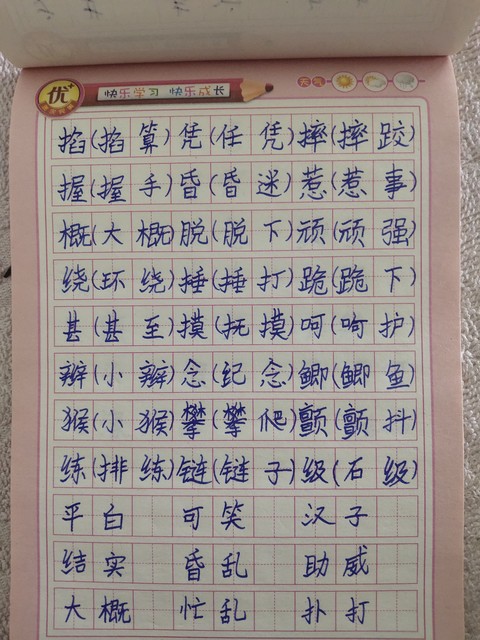 优 快乐学习 快乐成长 天气
掐(掐算)凭(任凭)摔(摔跤)
握(握手)昏(昏迷)惹(惹事)
概(大概)脱(脱下)顽(顽强)
绕(环绕)捶(捶打)跪(跪下)
甚(甚至)摸(抚摸)呵(呵护)
辫(小辫)念(纪念)鲫(鲫鱼)
猴(小猴)攀(攀爬)颤(颤抖)
练(排练)链(链子)级(石级)
平白 可笑 汉子
结实 昏乱 助威
大概 忙乱 扑打